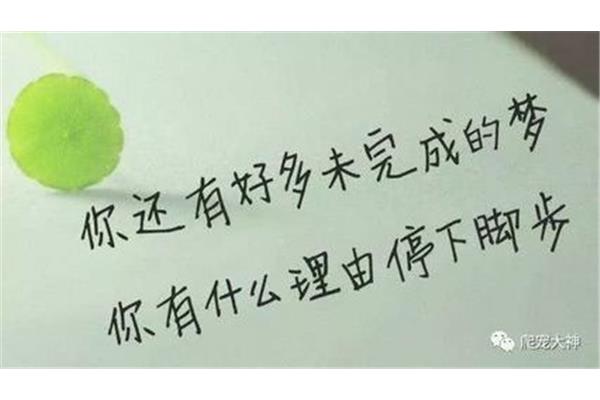 你还有好多未完成的梦
你有什么理由停下脚步
爬宠大神